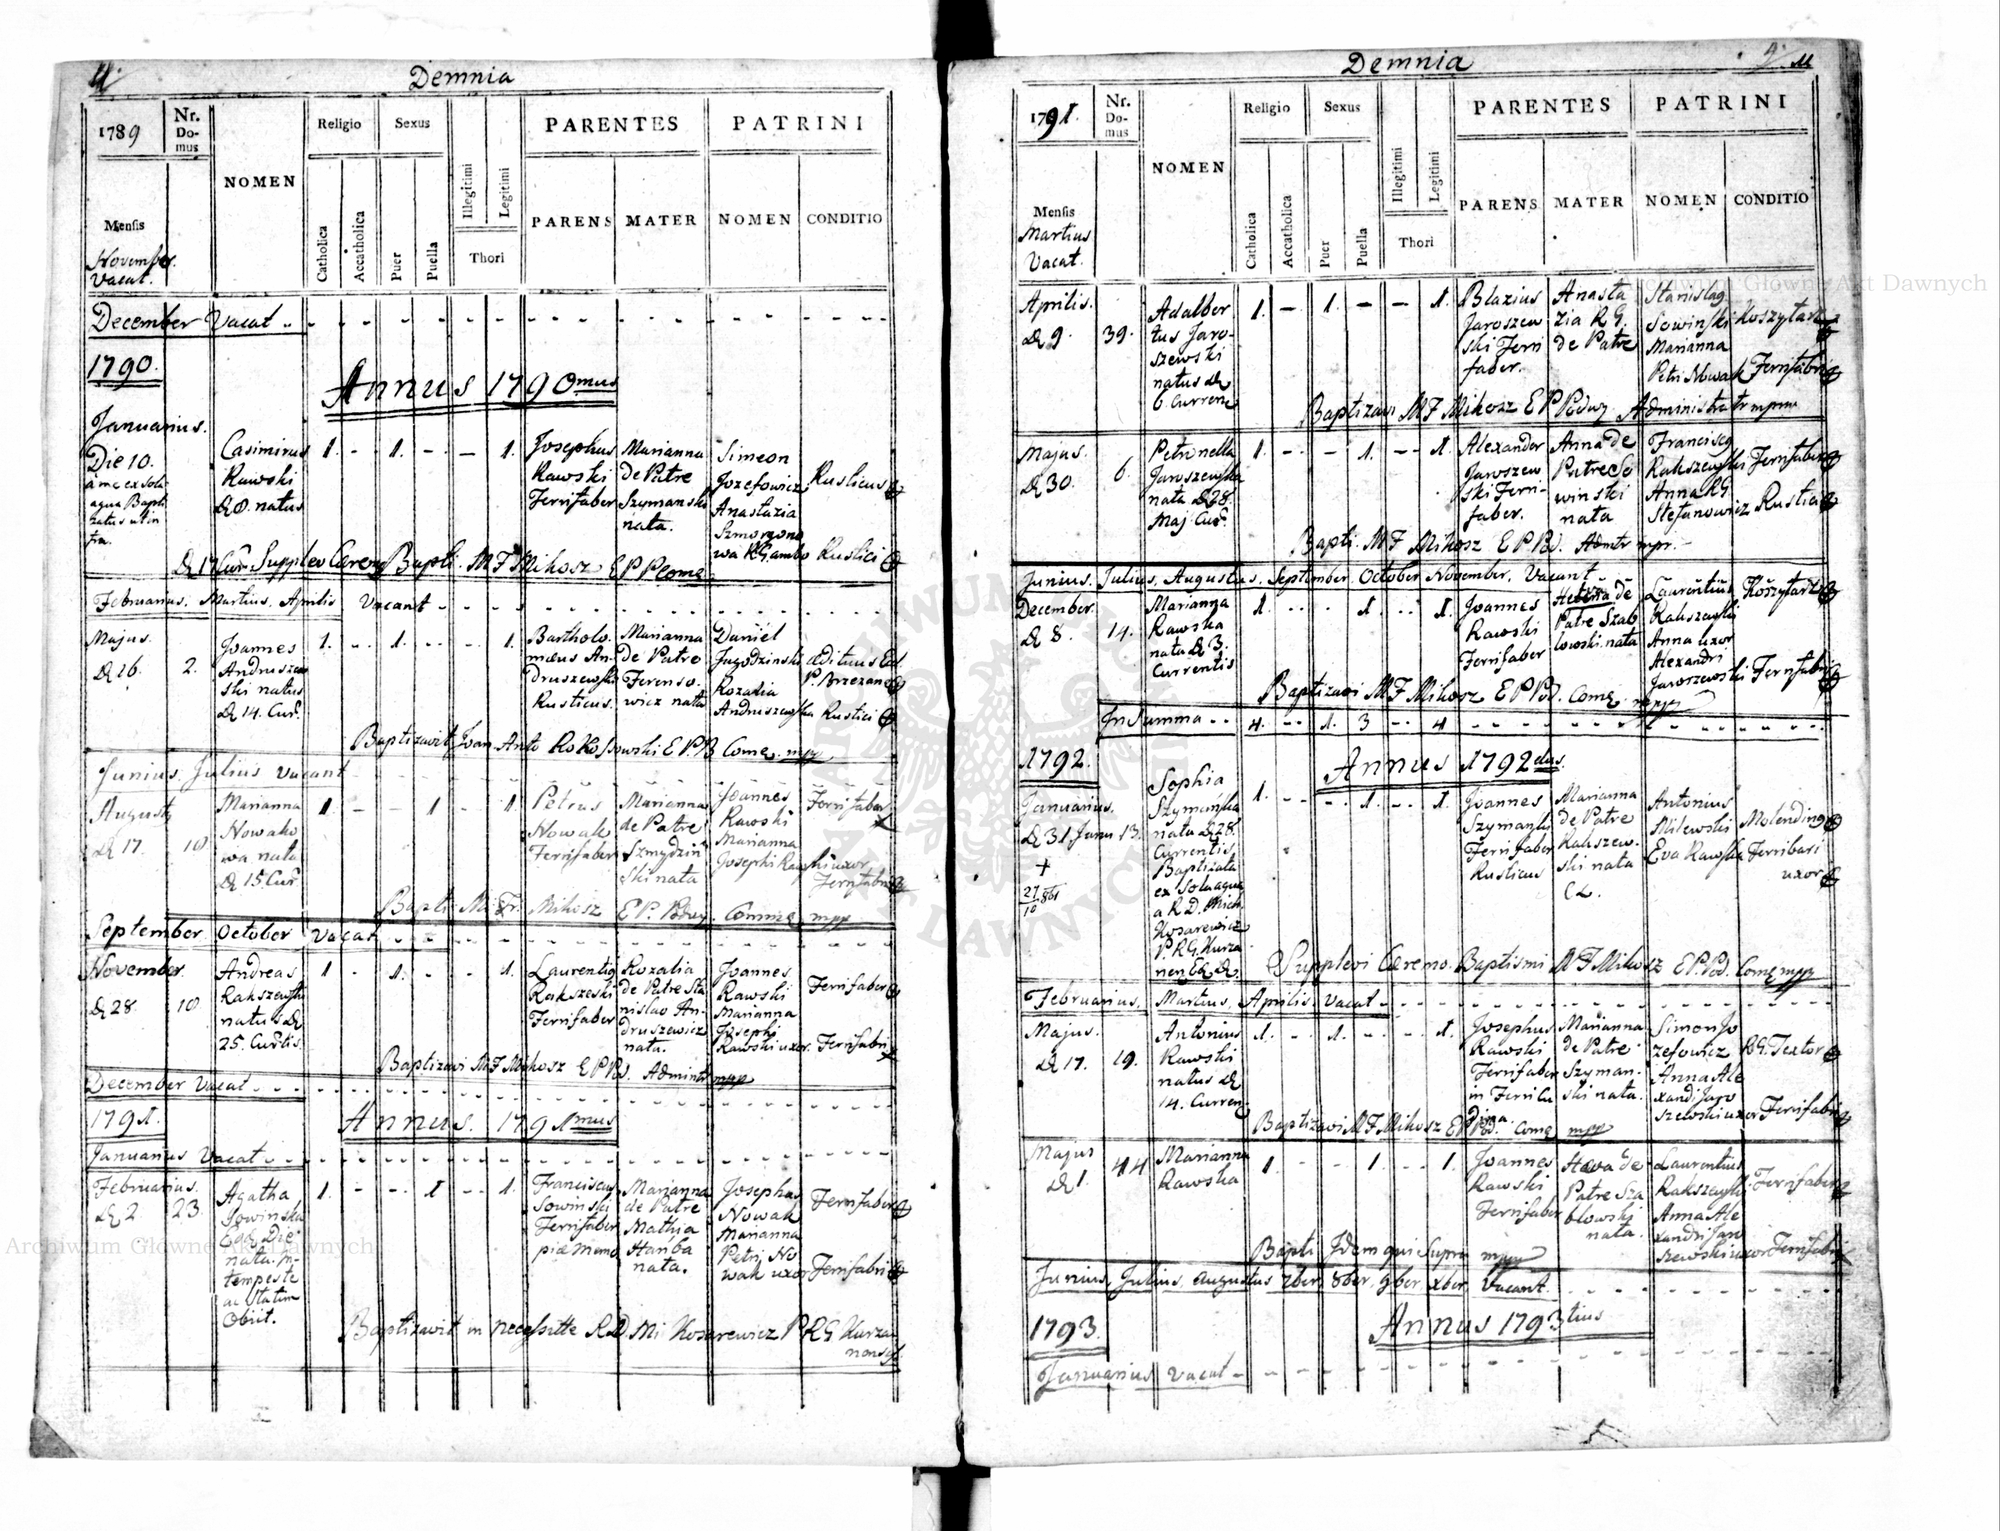 4.
Demnia
1789
Nr. Domus
NOMEN
Religio
Sexus
PARENTES
PATRINI
Mensis
Catholica
Accatholica
Puer
Puella
Illegitimi
Legitimi
Thori
PARENS
MATER
NOMEN
CONDITIO
November.
Vacat.
December Vacat
1790.
Annus 1790mus
Januarius.
Die 10.
Casimirus
Rawski
natus
1. - 1. - - 1.
Josephus
Rawski
Ferrifaber
Marianna
de Patre
Szymanski
nata.
Simeon
Jozefowicz
Anastazia
Rusticus
Rustici
Bapti. M F Mikosz E P
Februarius. Martius. Aprilis Vacant
Majus.
D 16. 2.
Joannes
Andruszew
ski natus
D 14. Cur.
1. - 1. - - 1.
Bartholo
mæus An-
druszewski
Rusticus.
Marianna
de Patre
Ferenso-
wicz nata
Daniel
Jagodzinski
Rozalia
Andruszewska
Rustici
Baptizavit Joan. Anto Rokossowski E P B Come. mpp
Junius. Julius Vacant
Augusty
D 17. 10
Marianna
Nowako
wa nata
D 15 Cur
1. - - 1 - 1.
Petrus
Nowak
Ferrifaber
Marianna
de Patre
Szmydzin
ski nata
Joannes
Rawski
Marianna
Josephi Rawski uxor
Ferrifaber
Ferrifabri
Bapti M Fr. Mikosz E P. Comme mpp
September October Vacat
November.
D 28. 10
Andreas
Rakszewski
natus D
25. Curtis.
1 - 1. - - 1.
Laurentig
Rakszeski
Ferrifaber
Rozalia
de Patre Sta
nislao An-
druszewicz
nata.
Joannes
Rawski
Marianna
Josephi
Rawski uxor.
Ferrifaber
Ferrifabri
Baptizavi M F Mikosz E P Admint mpp
December Vacat
1791.
Annus. 1791mus
Januarius Vacat
Februarius.
D 2. 23.
Agatha
Sowinska
Die
nata. in-
tempeste
ac statim
Obiit.
1. - - 1 - 1.
Franciscus
Sowinski
Ferrifaber
piæ Memo
Marianna
de Patre
Mathia
Hanba
nata.
Josephus
Nowak
Marianna
Petri No
wak uxor
Ferrifaber
Ferrifabri
Baptizavit in necessitte R D. Mi Kosarewicz P R G Kurza
Demnia
1791.
Nr. Domus
NOMEN
Religio
Sexus
PARENTES
PATRINI
Mensis
Martius
Vacat.
Catholica
Accatholica
Puer
Puella
Illegitimi
Legitimi
Thori
PARENS
MATER
NOMEN
CONDITIO
Aprilis.
D 9. 39.
Adalber
tus Jaro-
szewski
natus D
6. Curren
1. - 1. - - 1.
Blazius
Jaroszew
ski Ferri
faber.
Anasta
zia R G.
de Patre
Stanislag
Sowinski
Marianna
Petri Nowak
Koszytarz
Ferrifabri
Baptizavi M F Mikosz E P Administratr mpm
Majus.
D 30. 6.
Petronella
Jaroszewska
nata D 28.
Maj Cur.
1. - - 1. - 1.
Alexander
Jaroszew
ski Ferri-
faber.
Anna de
Patre So
winski
nata
Franciscg
Rakszewski
Anna RG
Stefanowicz
Ferrifaber
Rustica
Bapti. M F Mikosz E P Admtr mpr.
Junius. Julius, Augustus. September October November. Vacant
December
D 8. 14.
Marianna
Rawska
nata D 3.
Currentis
1. - - 1 - 1.
Joannes
Rawski
Ferrifaber
Helena de
Patre Szab
lowski nata
Laurentius
Rakszewski
Anna uxor
Alexandri
Jaroszewski
Koszytarz
Ferrifabri
Baptizavi M F Mikosz E P Pod. Come mpp
In Summa 4. - 1. 3 - 4
1792.
Annus 1792dus.
Januarius.
D 31 Janu 13.
Sophia
Szymańska
nata D 28.
Currentis
Baptizata
ex Sola aqua
a R D. Mich
Kosarewicz
P. R G. Kurza
1. - - 1. - 1.
Joannes
Szymanski
Ferrifaber
Rusticus
Marianna
de Patre
Rakszew-
ski nata
Antonius
Milewski
Eva Rawska
Molending
Ferrifari
uxor
Supplevi Ceremo. Baptismi M F Mikosz E P. Pod. Come mpp
Februarius. Martius. Aprilis Vacat
Majus.
D 17. 19.
Antonius
Rawski
natus D
14. Curren
1. - 1. - - 1.
Josephus
Rawski
Ferrifaber
in Ferricu
dina
Marianna
de Patre
Szyman-
ski nata.
Simon Jo
zefowicz
Anna Ale
xandi Jaro
szewski uxor
RG. Textor
Ferrifabri
Baptizavi M F Mikosz E P Pod. Come mpp
Majus
D 1. 44
Marianna
Rawska
1. - - 1. - 1.
Joannes
Rawski
Ferrifaber
Heva de
Patre Sza
blowski
nata.
Laurentius
Rakszewski
Anna Ale
xandri Jaro
szewski uxor
Ferrifaber
Ferrifabri
Bapti Idem qui Supra mpp
Junius, Julius, Augustus 7ber 8ber, 9ber xber, Vacant.
1793.
Annus 1793tius
Januarius Vacat
Archiwum Główne Akt Dawnych
Archiwum Główne Akt Dawnych
ARCHIWUM GŁÓWNE AKT DAWNYCH